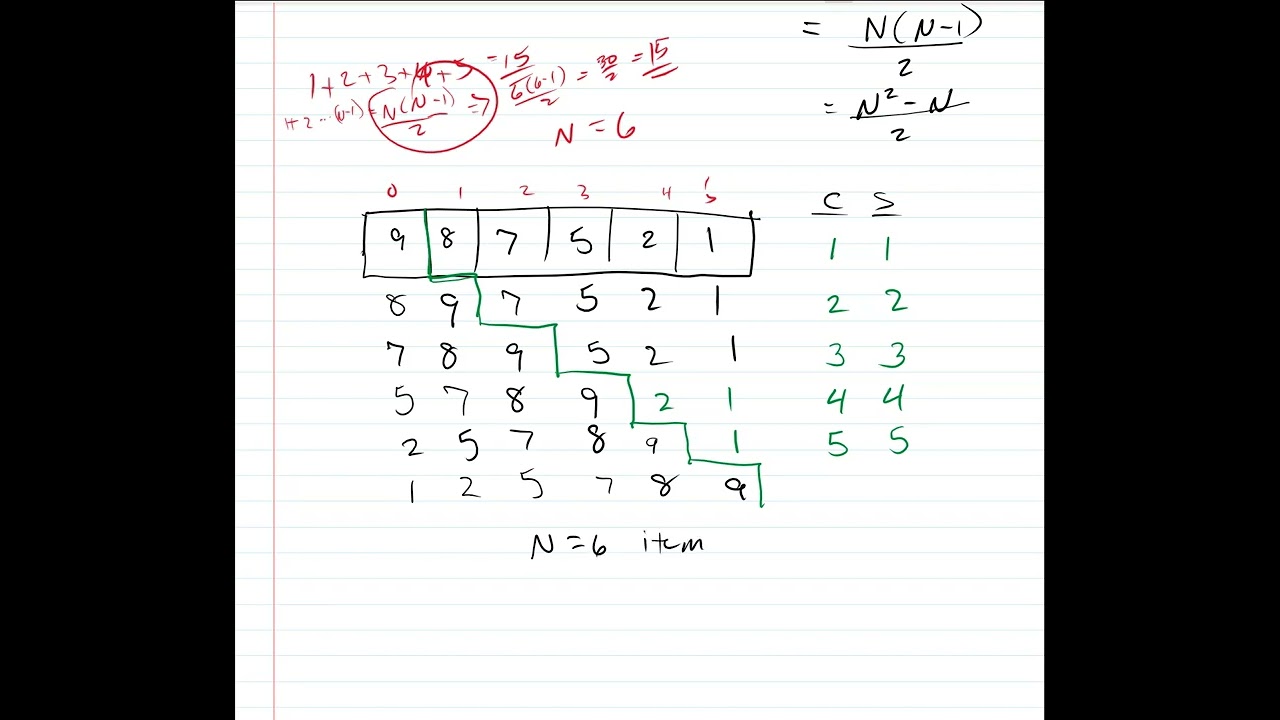 = N(N-1)
2
1+2+3+4+5 = 15
1+2...(N-1) = N(N-1)/2 => 6(6-1)/2 = 30/2 = 15
N = 6
= N² - N
2
0 1 2 3 4 5
C S
9 8 7 5 2 1
1 1
8 9 7 5 2 1
2 2
7 8 9 5 2 1
3 3
5 7 8 9 2 1
4 4
2 5 7 8 9 1
5 5
1 2 5 7 8 9
N = 6 item